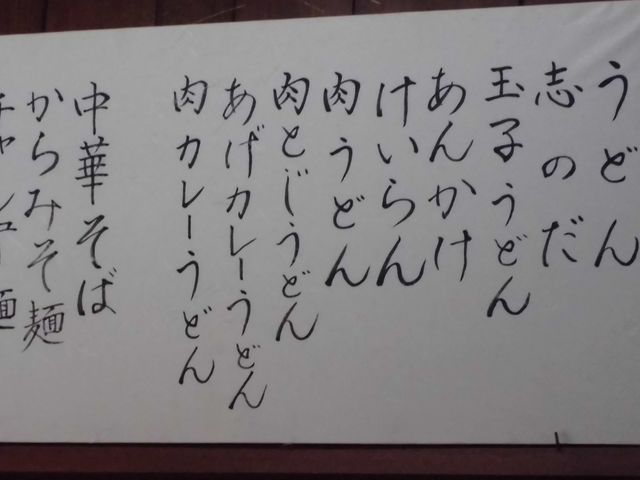 うどん
志のだ
玉子うどん
あんかけ
けいらん
肉うどん
肉とじうどん
あげカレーうどん
肉カレーうどん
中華そば
からみそ麺
チャーシュー麺